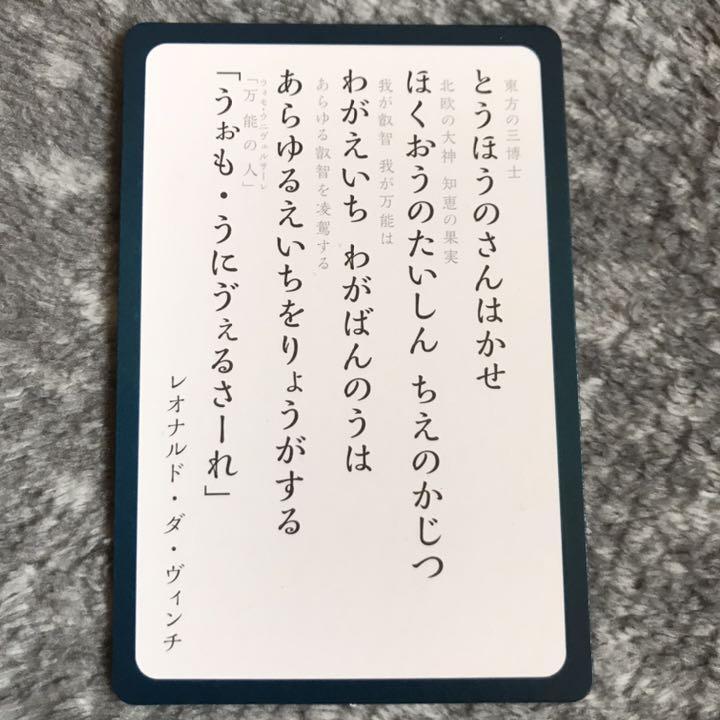 東方の三博士
とうほうのさんはかせ
北欧の大神 知恵の果実
ほくおうのたいしん ちえのかじつ
我が叡智 我が万能は
わがえいち わがばんのうは
あらゆる叡智を凌駕する
あらゆるえいちをりょうがする
ウォモ・ウニヴェルサーレ
「万能の人」
「うぉも・うにゔぇるさーれ」
レオナルド・ダ・ヴィンチ